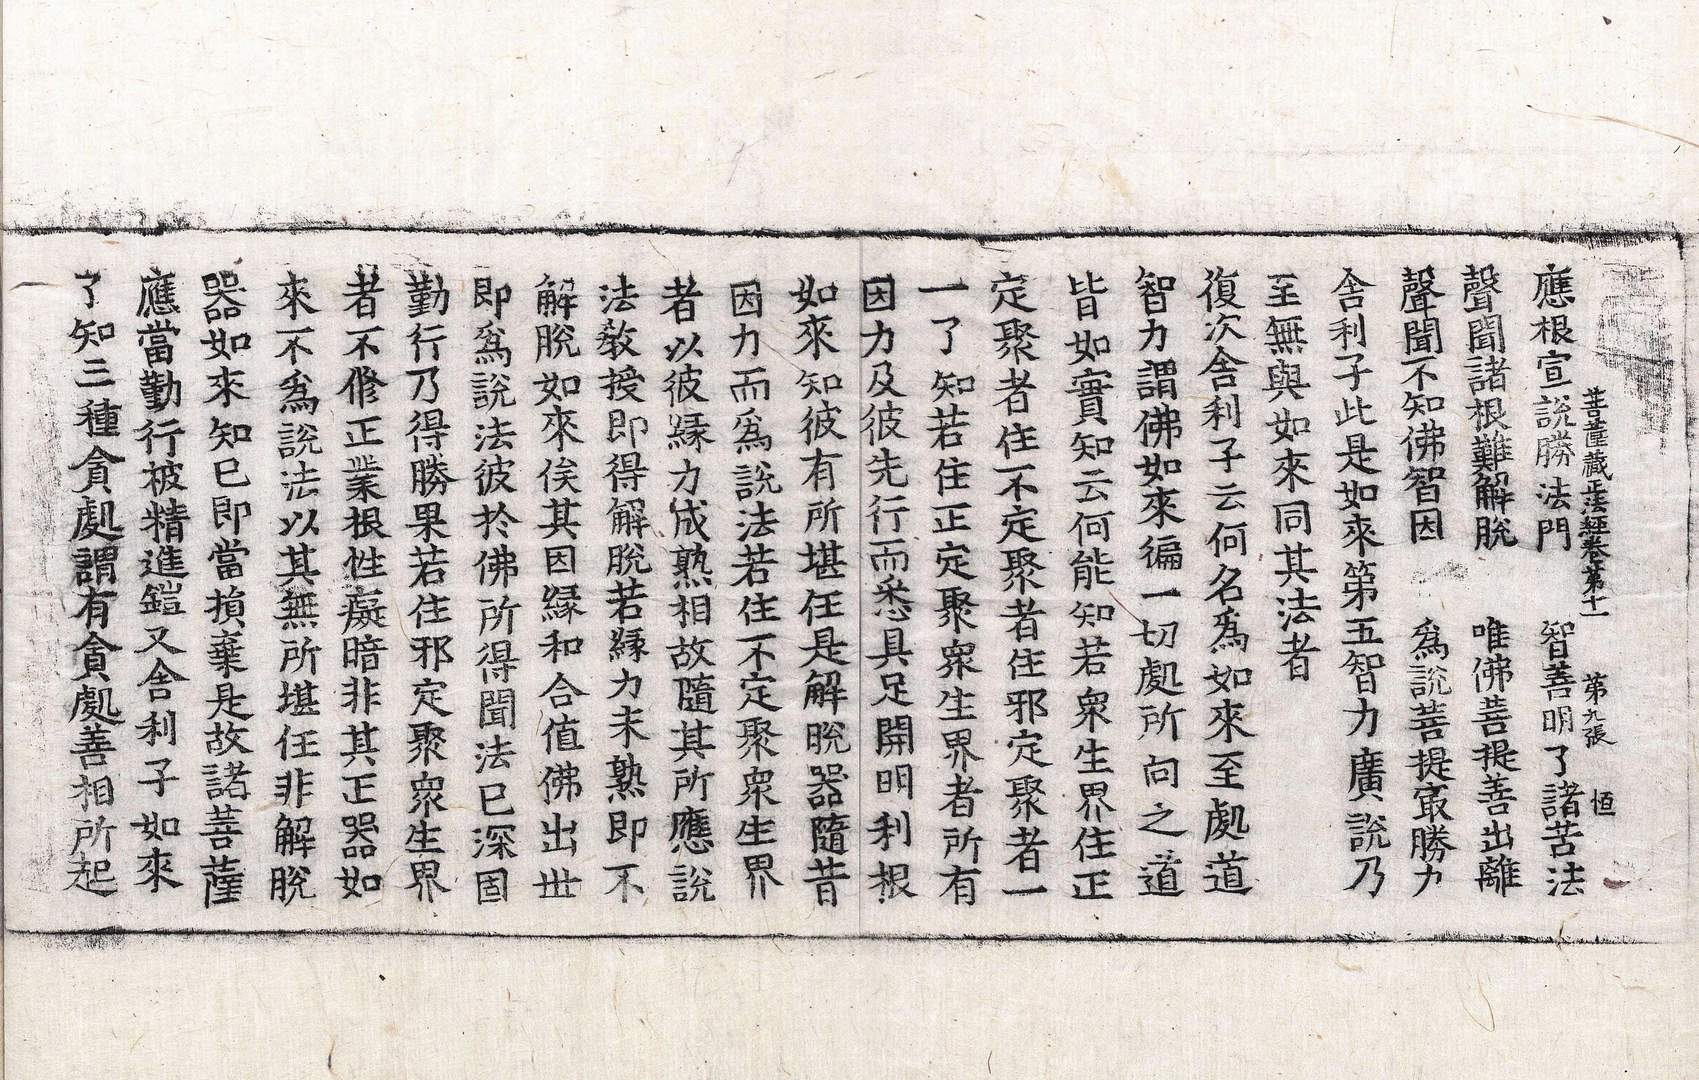 菩薩藏正法經卷第十一 第九張 恒
應根宣說勝法門 智善明了諸苦法
聲聞諸根難解脫 唯佛菩提善出離
聲聞不知佛智因 爲說菩提㝡勝力
舎利子此是如來第五智力廣說乃
至無與如來同其法者
復次舎利子云何名爲如來至處道
智力謂佛如來徧一切處所向之道
皆如實知云何能知若衆生界住正
定聚者住不定聚者住邪定聚者一
一了知若住正定聚衆生界者所有
因力及彼先行而悉具足開明利根
如來知彼有所堪任是解脫器隨昔
因力而爲說法若住不定聚衆生界
者以彼緣力成熟相故隨其所應說
法教授即得解脫若緣力未熟即不
解脫如來俟其因緣和合值佛出世
即爲說法彼於佛所得聞法已深固
勤行乃得勝果若住邪定聚衆生界
者不修正業根性癡暗非其正器如
來不爲說法以其無所堪任非解脫
器如來知已即當損棄是故諸菩薩
應當勤行被精進鎧又舎利子如來
了知三種貪處謂有貪處善相所起